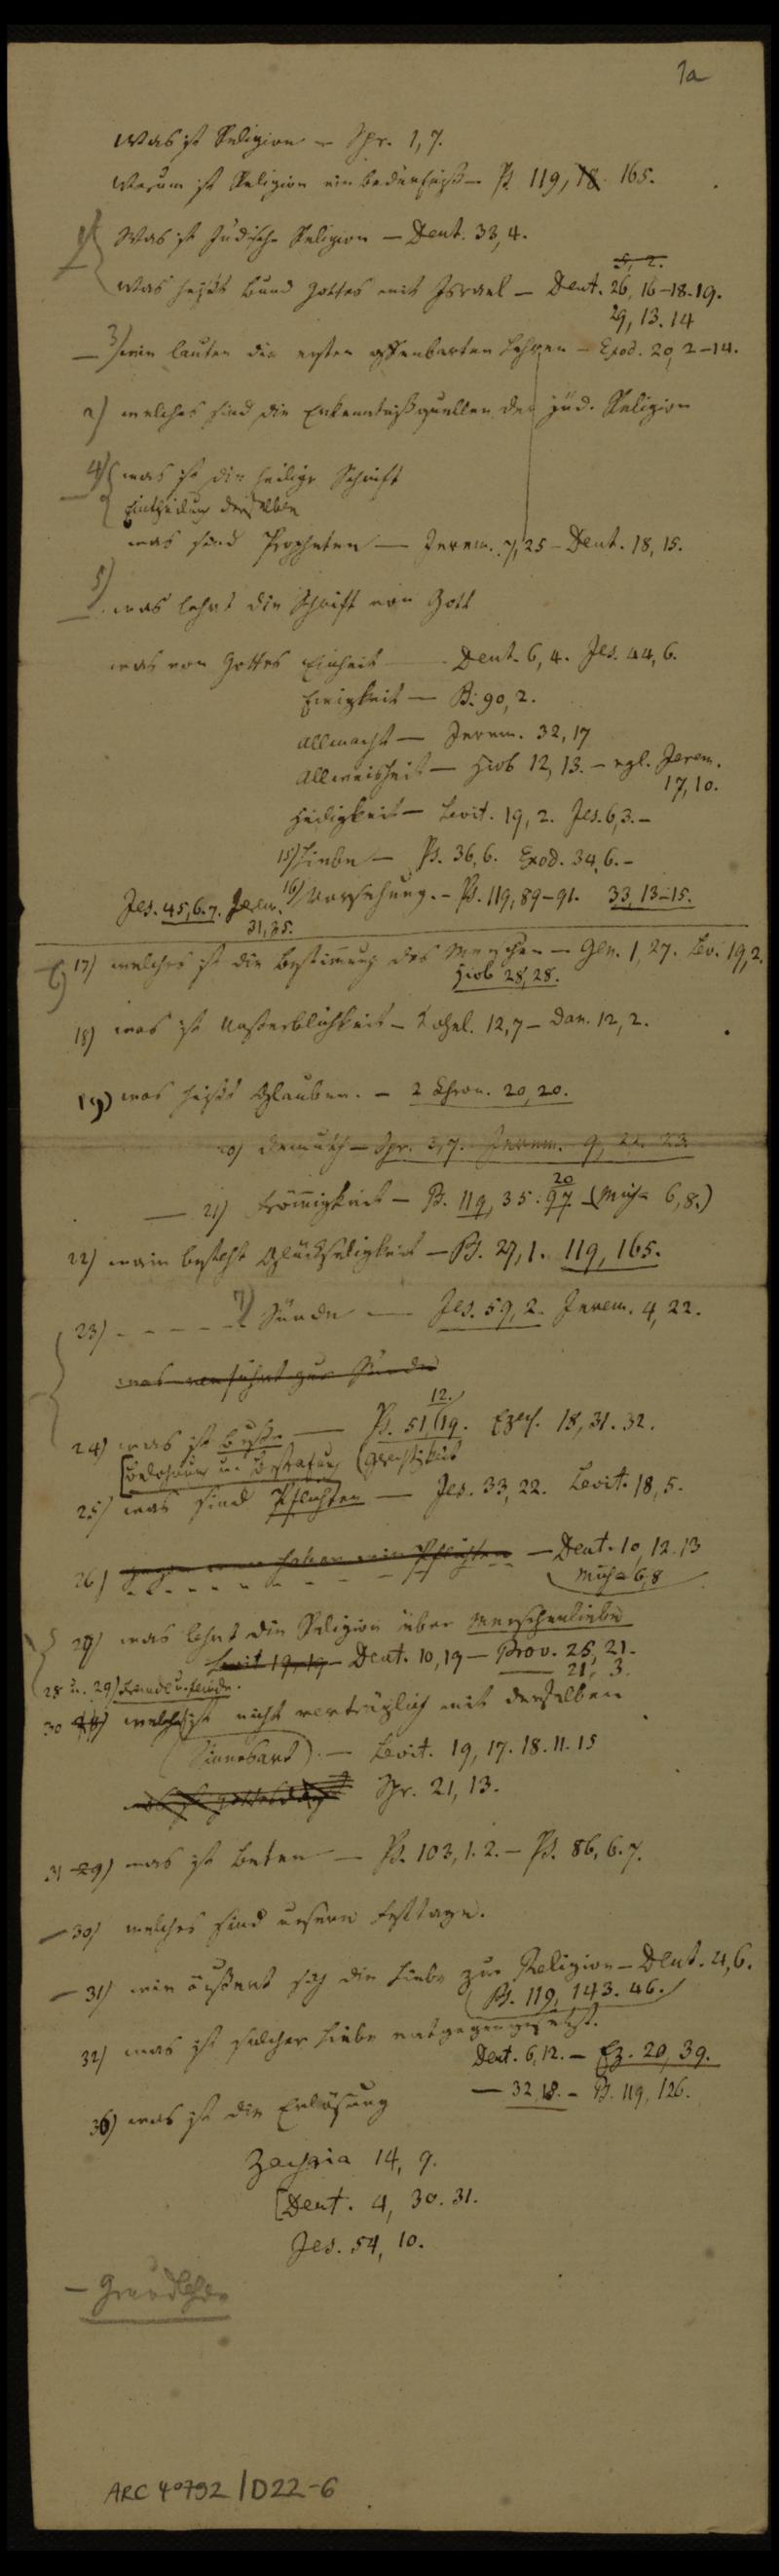 1a
Was ist Religion – Spr. 1, 7.
Warum ist Religion ein Bedürfniß – Ps. 119, 18. 165.
1) Was ist Jüdische Religion – Deut. 33, 4.
5, 2.
Was heißt Bund Gottes mit Israel – Deut. 26, 16–18. 19.
29, 13. 14
3) wie lauten die ersten offenbarten Lehren – Exod. 20, 2–14.
2) welches sind die Erkenntnißquellen der jüd. Religion
4) was ist die heilige Schrift
Eintheilung derselben
was sind Propheten — Jerem. 7, 25 – Deut. 18, 15.
5) was lehrt die Schrift von Gott
was von Gottes Einheit — Deut. 6, 4. Jes. 44, 6.
Ewigkeit — Ps. 90, 2.
Allmacht — Jerem. 32, 17
Allweisheit — Hiob 12, 13. – vgl. Jerem.
17, 10.
Heiligkeit — Levit. 19, 2. Jes. 6, 3. –
15) Liebe — Ps. 36, 6. Exod. 34, 6. –
16) Vorsehung. – Ps. 119, 89–91. 33, 13–15.
Jes. 45, 6. 7. Jerem.
31, 35.
6) 17) welches ist die Bestimmung des Menschen – Gen. 1, 27. Lev. 19, 2.
Hiob 28, 28.
18) was ist Unsterblichkeit – Kohel. 12, 7 – Dan. 12, 2.
19) was heißt Glauben. – 2 Chron. 20, 20.
20) Demuth – Spr. 3, 7. Jerem. 9, 22. 23.
20
— 21) Frömmigkeit – Ps. 119, 35. 97 – (Micha 6, 8.)
22) worin besteht Glückseligkeit – Ps. 27, 1. 119, 165.
23) - - - - - 7) Sünde — Jes. 59, 2. Jerem. 4, 22.
was verführt zur Sünde
12.
24) was ist Buße — Ps. 51, 19. Ezech. 18, 31. 32.
[Belohnung u. Bestrafung (Gerechtigkeit
25) was sind Pflichten — Jes. 33, 22. Levit. 18, 5.
26) gegen wen haben wir Pflichten — Deut. 10, 12. 13
Micha 6, 8
27) was lehrt die Religion über Menschenliebe
Levit 19, 19 – Deut. 10, 19 – Prov. 25, 21.
21, 3.
28 u. 29) Freunde u. Feinde.
30 welches ist nicht verträglich mit derselben
(Sinnesart). — Levit. 19, 17. 18. 11. 15
Spr. 21, 13.
31 29) was ist Beten — Ps. 103, 1. 2. – Ps. 86, 6. 7.
— 30) welches sind unsere Festtage.
— 31) wie äußert sich die Liebe zur Religion – Deut. 4, 6.
(Ps. 119, 143. 46.
32) was ist solcher Liebe entgegengesetzt.
Deut. 6, 12. – Ez. 20, 39.
— 32, 18. – Ps. 119, 126.
36) was ist die Erlösung
Zacharia 14, 9.
[Deut. 4, 30. 31.
Jes. 54, 10.
— Grundlehre
ARC 4°792 / D22-6